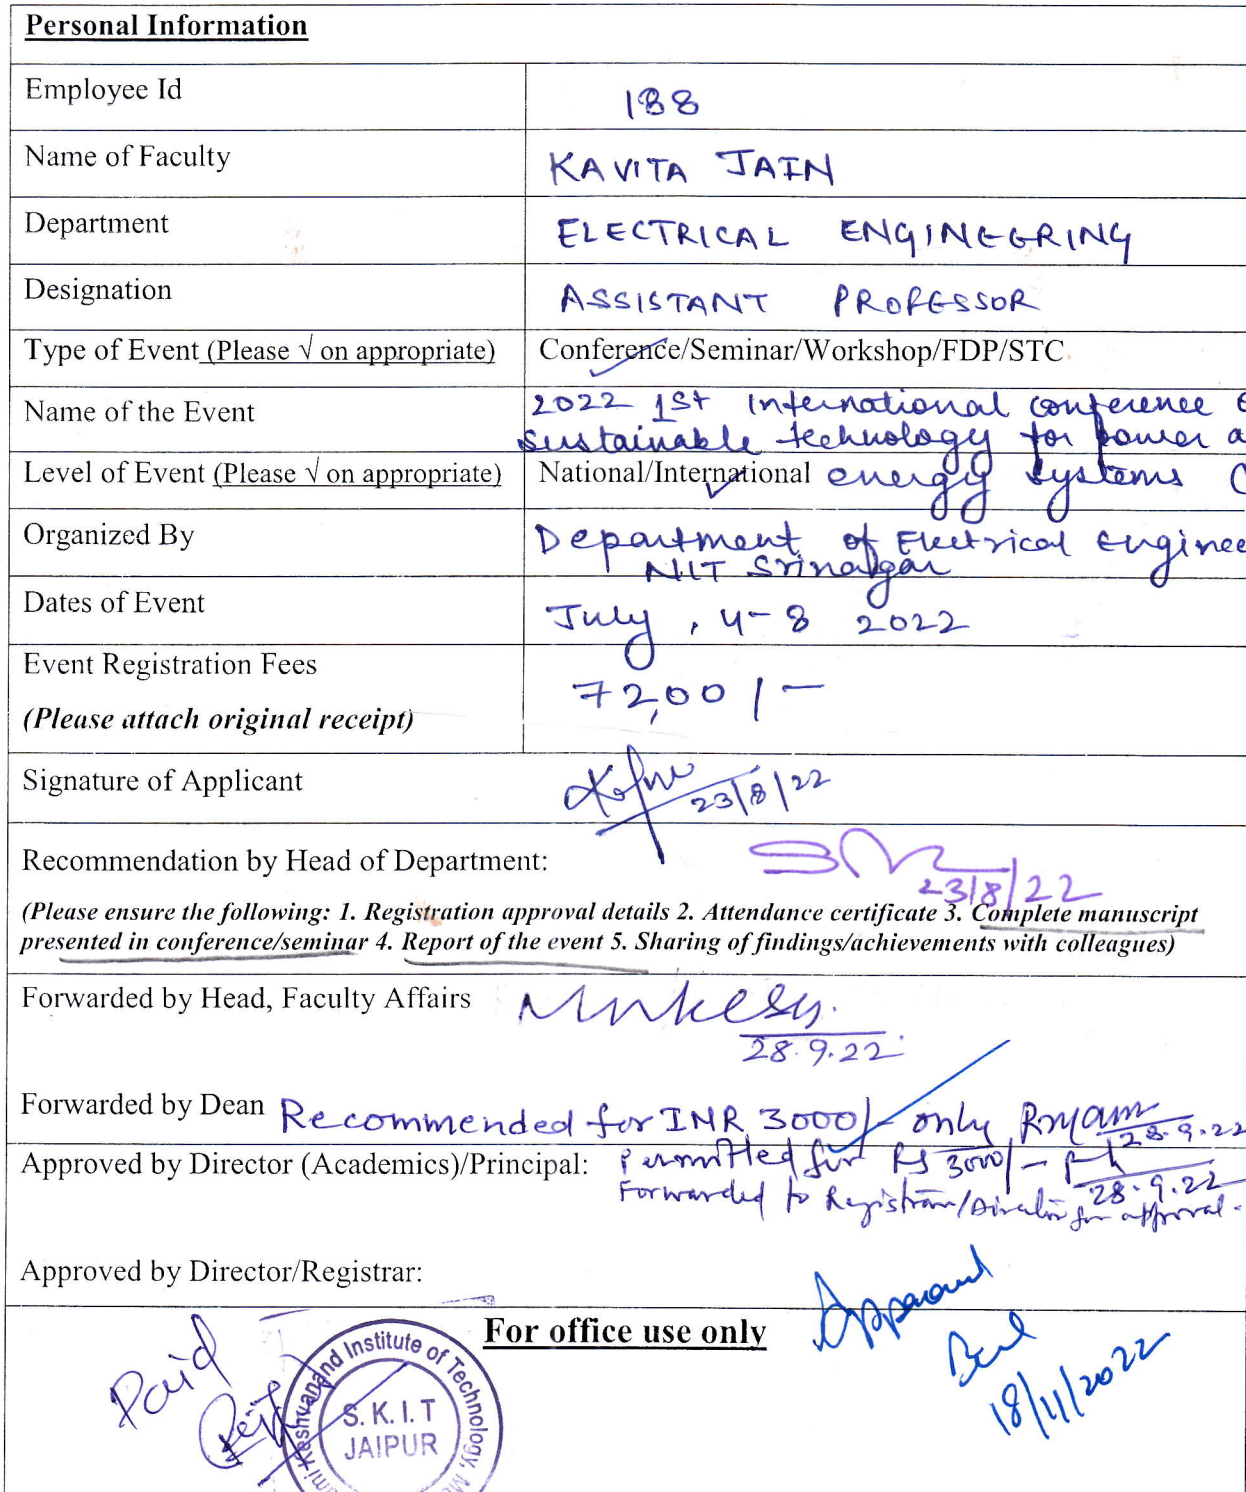 Personal Information
Employee Id 188
Name of Faculty KAVITA JAIN
Department ELECTRICAL ENGINEERING
Designation ASSISTANT PROFESSOR
Type of Event (Please √ on appropriate) Conference/Seminar/Workshop/FDP/STC
Name of the Event 2022 1st International conference
sustainable technology for power a
Level of Event (Please √ on appropriate) National/International energy systems (
Organized By Department of Electrical Enginee
NIT Srinagar
Dates of Event July, 4-8 2022
Event Registration Fees 72,00/-
(Please attach original receipt)
Signature of Applicant 23/8/22
Recommendation by Head of Department: 23/8/22
(Please ensure the following: 1. Registration approval details 2. Attendance certificate 3. Complete manuscript
presented in conference/seminar 4. Report of the event 5. Sharing of findings/achievements with colleagues)
Forwarded by Head, Faculty Affairs Mukesh.
28.9.22
Forwarded by Dean Recommended for INR 3000/- only 28.9.22
Approved by Director (Academics)/Principal: Permitted for Rs 3000/- 28.9.22
Forwarded to Registrar/Director for approval.
Approved by Director/Registrar: Approved
18/11/2022
For office use only
Paid
Keshvanand Institute of Technology,
S.K.I.T
JAIPUR